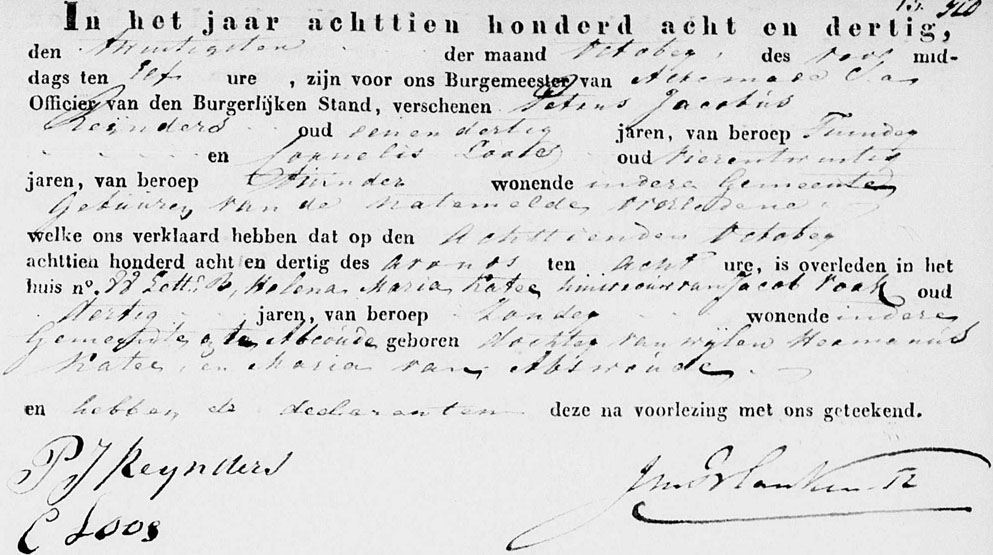 In het jaar achttien honderd acht en dertig,
den twintigsten der maand October des voor mid-
dags ten Elf ure , zijn voor ons Burgemeester van
Officier van den Burgerlijken Stand, verschenen Petrus Jacobus
Reijnders oud eenendertig jaren, van beroep Tuinder
en Cornelis Loos oud vierentwintig
jaren, van beroep Tuinder wonende in dese Gemeente
Gebuuren van de natemelde overledene
welke ons verklaard hebben dat op den Achttienden October
achttien honderd acht en dertig des avonds ten acht ure, is overleden in het
huis nº. 22 Lett: B, Helena Maria Katee huisvrouw van Jacob oud
dertig jaren, van beroep Zonder wonende in dese
Gemeente te Abcoude geboren dochter van wijlen Hermanus
Katee, en Maria van Abswoude
en hebben de declaranten deze na voorlezing met ons geteekend.
P J Reynders
C Loos